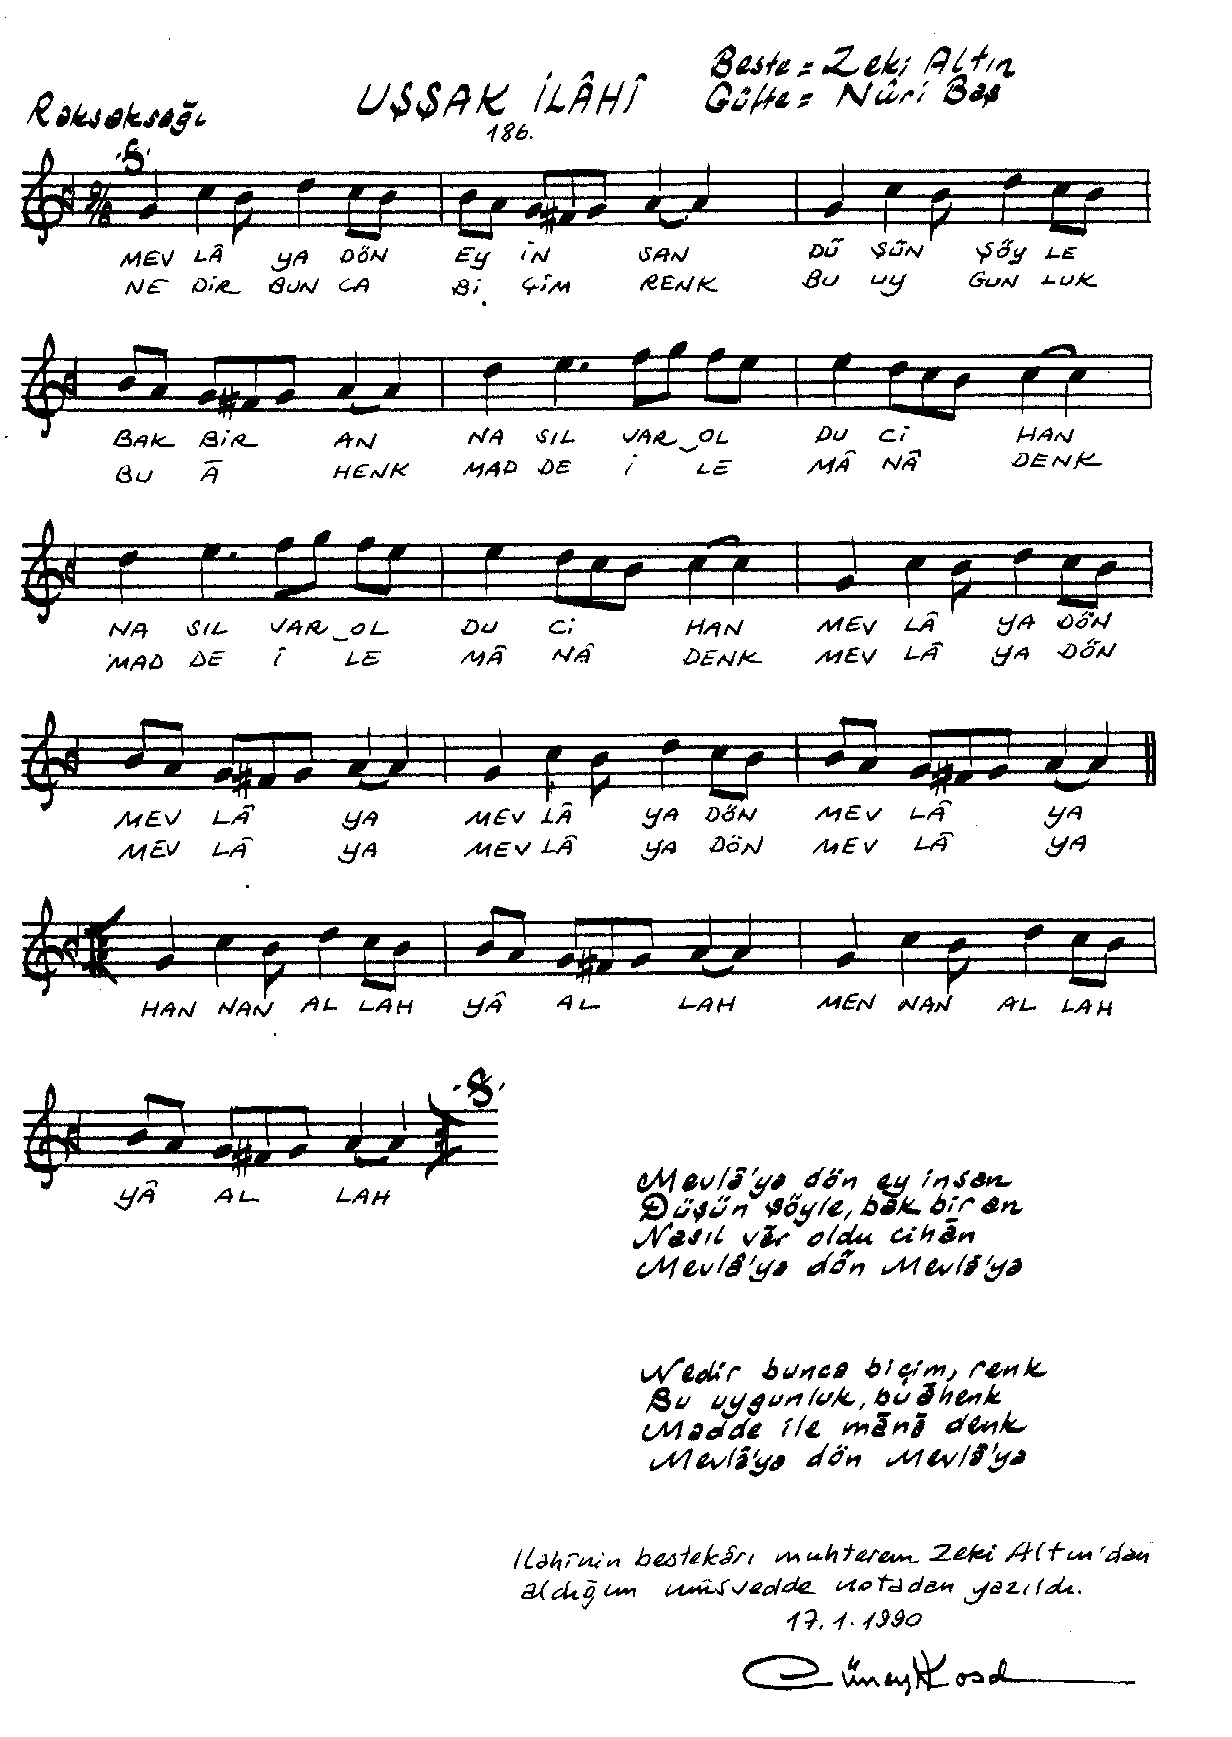 Beste = Zeki Altın
UŞŞAK İLÂHÎ
Güfte = Nûri Baş
Raksaksağı
186.
9/8
MEV LÂ YA DÖN EY İN SAN DÜ ŞÜN ŞÖY LE
NE DİR BUN CA Bİ ÇİM RENK BU UY GUN LUK
BAK BİR AN NA SIL VAR_OL DU Cİ HAN
BU Â HENK MAD DE İ LE MÂ NÂ DENK
NA SIL VAR_OL DU Cİ HAN MEV LÂ YA DÖN
MAD DE İ LE MÂ NÂ DENK MEV LÂ YA DÖN
MEV LÂ YA MEV LÂ YA DÖN MEV LÂ YA
MEV LÂ YA MEV LÂ YA DÖN MEV LÂ YA
HAN NAN AL LAH YÂ AL LAH MEN NAN AL LAH
YÂ AL LAH
Mevlâ'ya dön ey insan
Düşün şöyle, bak bir an
Nasıl vâr oldu cihân
Mevlâ'ya dön Mevlâ'ya
Nedir bunca biçim, renk
Bu uygunluk, bu âhenk
Madde ile mânâ denk
Mevlâ'ya dön Mevlâ'ya
İlahînin bestekârı muhterem Zeki Altın'dan
aldığım müsvedde notadan yazıldı.
17.1.1990